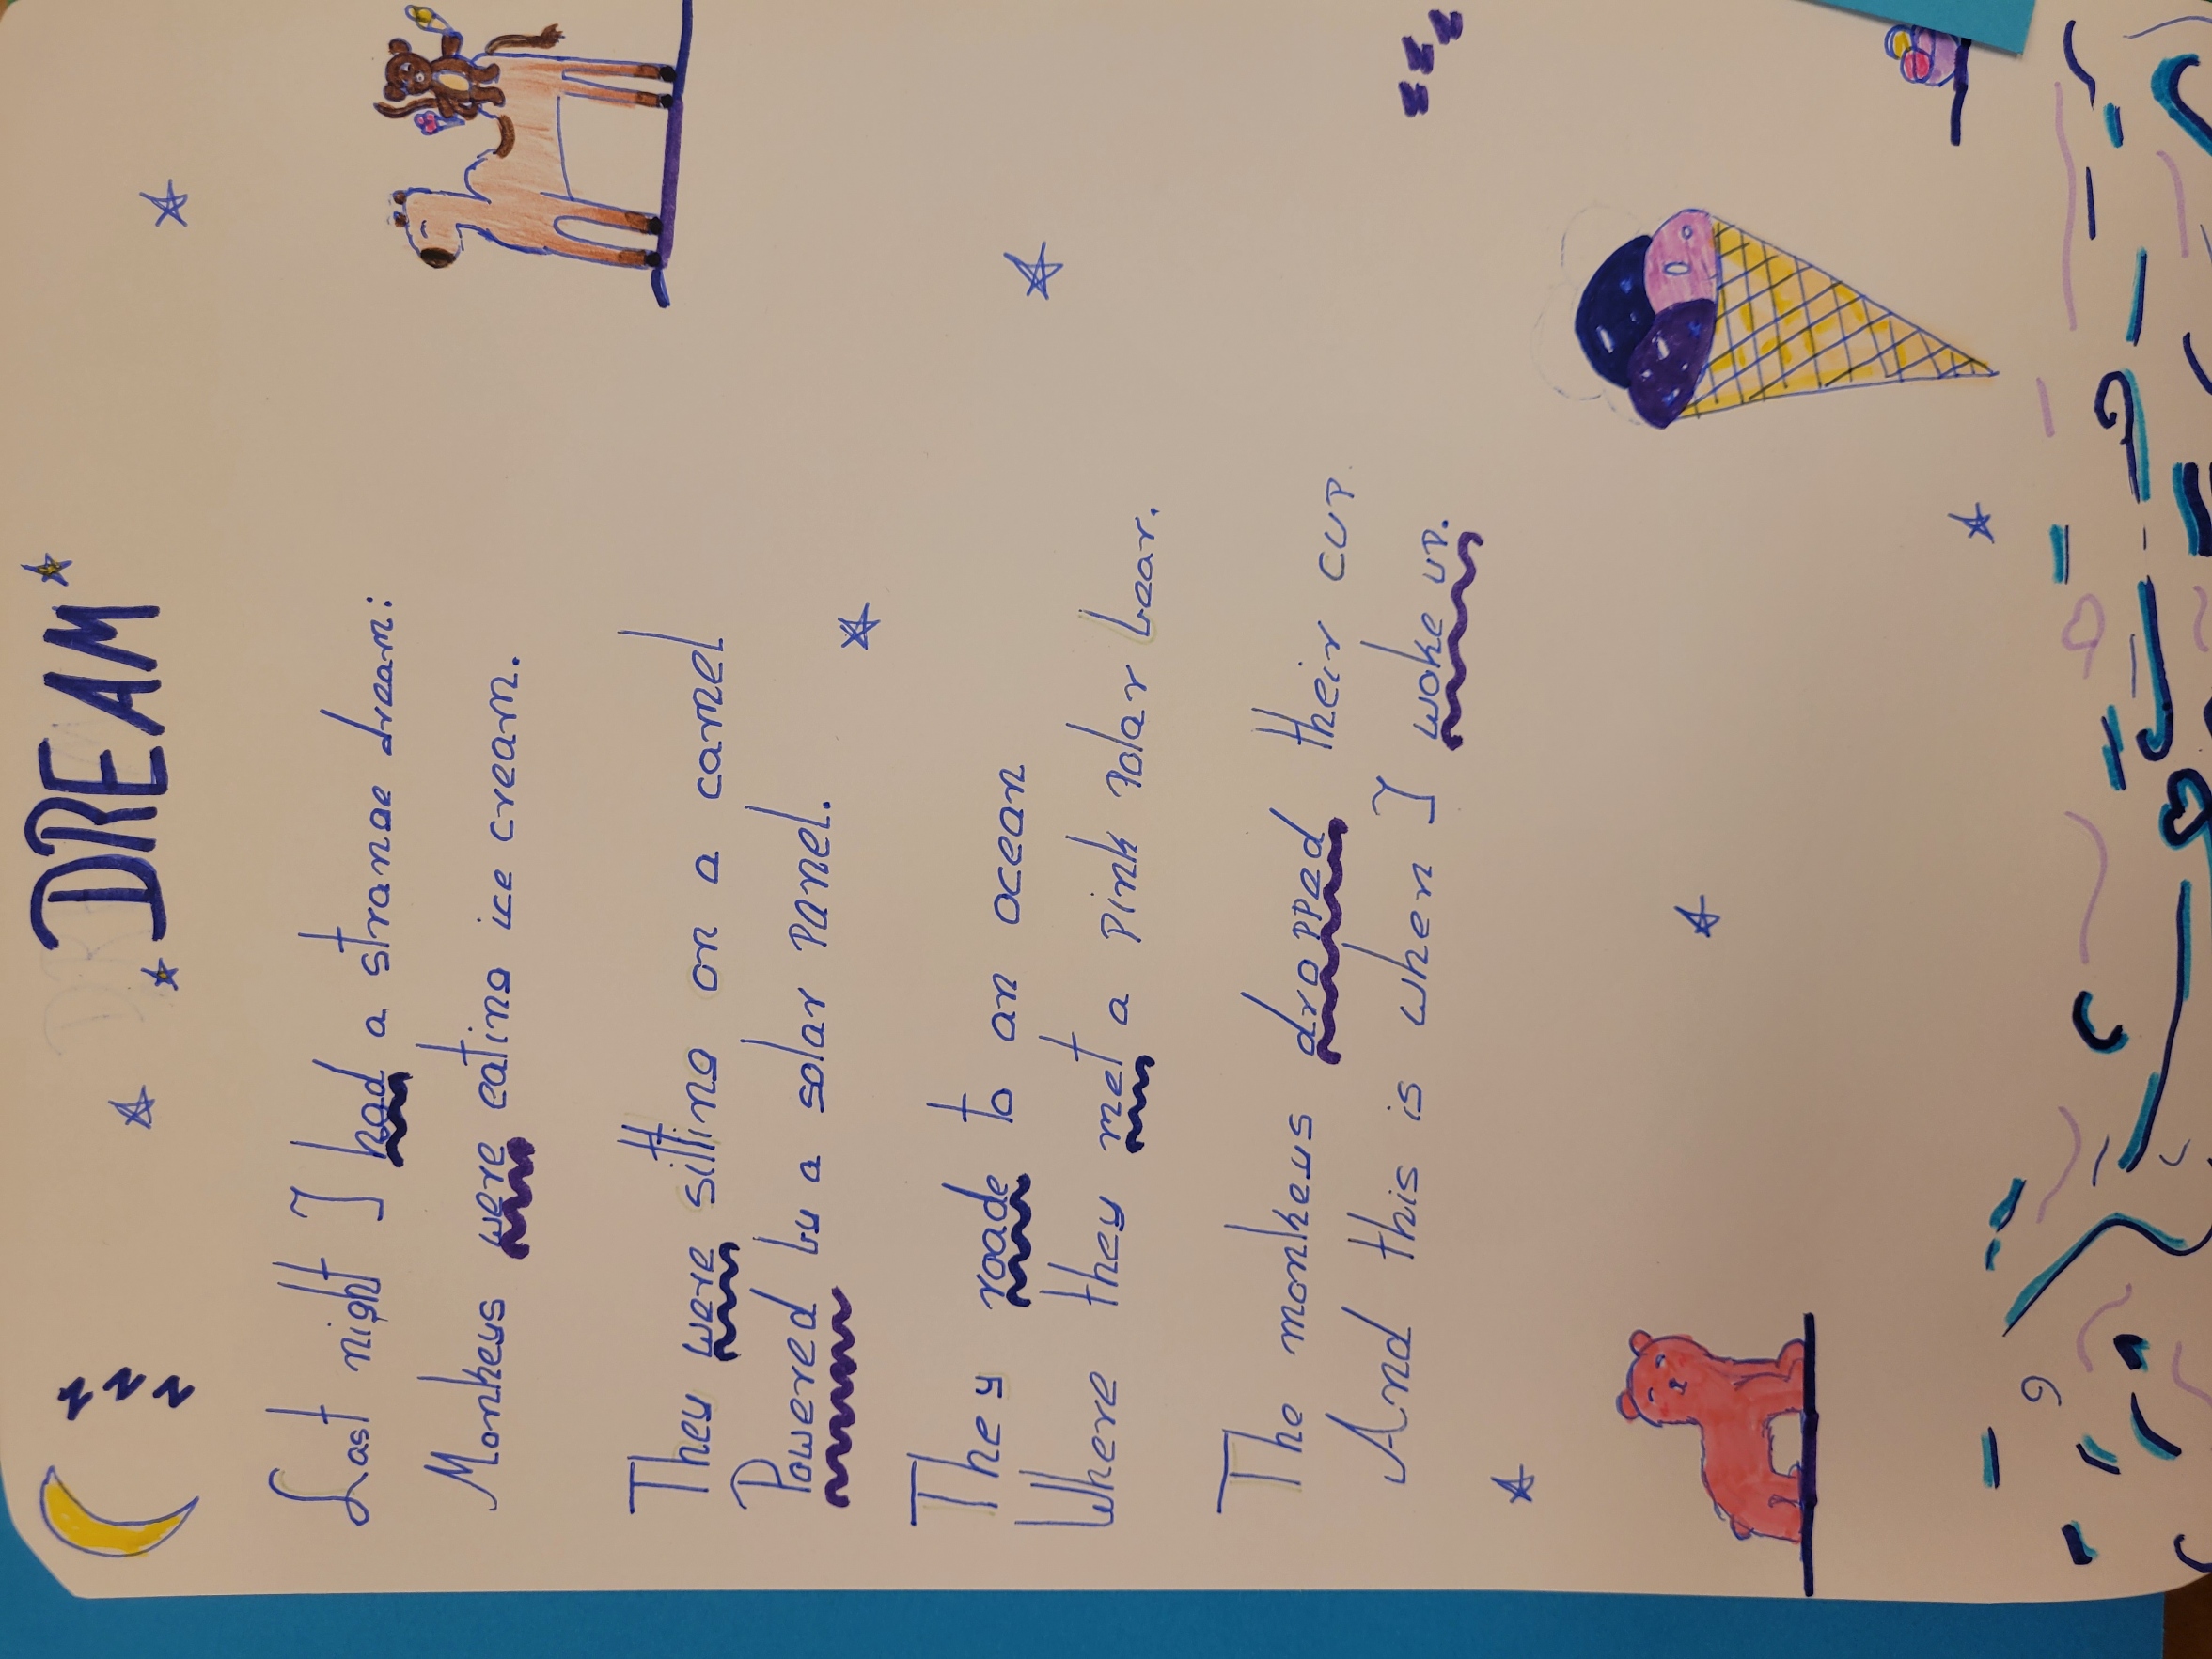 DREAM
Last night I had a strange dream:
Monkeys were eating ice cream.
They were sitting on a camel
Powered by a solar panel.
They roade to an ocean
Where they met a pink polar bear.
The monkeys dropped their cup
And this is when I woke up.